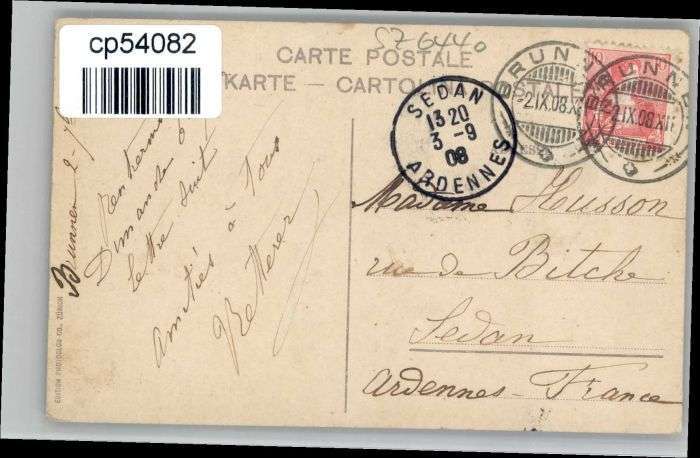 cp54082
CARTE POSTALE
KARTE — CARTOLINA POSTALE
SEDAN
13 20
3 -9
08
ARDENNES
BRUNNEN
-2.IX.08.XII
BRUNNEN
-2.IX.08.XII
Brunnen 2-
Dimanche
lettre suit
Amitiés à tous
Retterer
Madame Husson
rue de Bitche
Sedan
Ardennes - France
EDITION PHOTOGLOB-CO., ZÜRICH